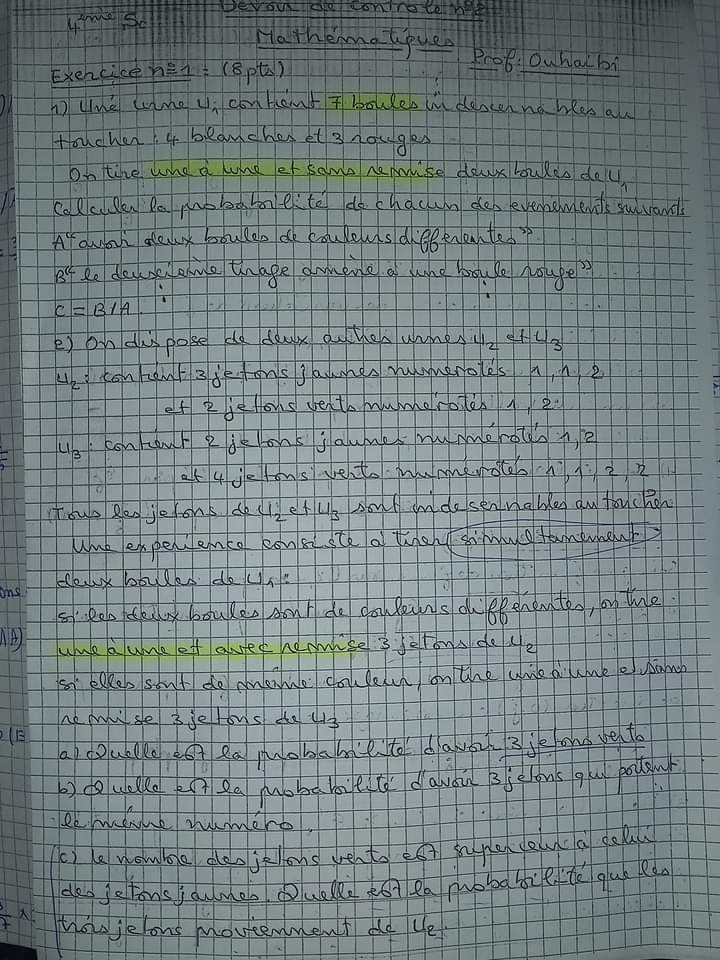 4ème Sc
Devoir de controle n°2
Mathématiques
Prof: Ouhaibi
Exercice n°1: (8pts)
1) Une urne U1 contient 7 boules indescernables au
toucher: 4 blanches et 3 rouges
On tire une à une et sans remise deux boules de U1
Calculer la probabilité de chacun des evenements suivants
A "avoir deux boules de couleurs différentes"
B "le deuxième tirage amène à une boule rouge"
C = B/A
2) On dispose de deux autres urnes U2 et U3
U2: contient 3 jetons jaunes numérotés 1, 1, 2
et 2 jetons verts numérotés 1, 2
U3: contient 2 jetons jaunes numérotés 1, 2
et 4 jetons verts numérotés 1, 1, 2, 2
Tous les jetons de U2 et U3 sont indesernables au toucher
Une expérience consiste à tirer simultanement
deux boules de U1:
si les deux boules sont de couleurs différentes, on tire
une à une et avec remise 3 jetons de U2
si elles sont de même couleur, on tire une à une et sans
remise 3 jetons de U3
a) Quelle est la probabilité d'avoir 3 jetons verts
b) Quelle est la probabilité d'avoir 3 jetons qui portent
le même numéro.
c) le nombre des jetons verts est superieur à celui
des jetons jaunes. Quelle est la probabilité que les
trois jetons proviennent de U2.